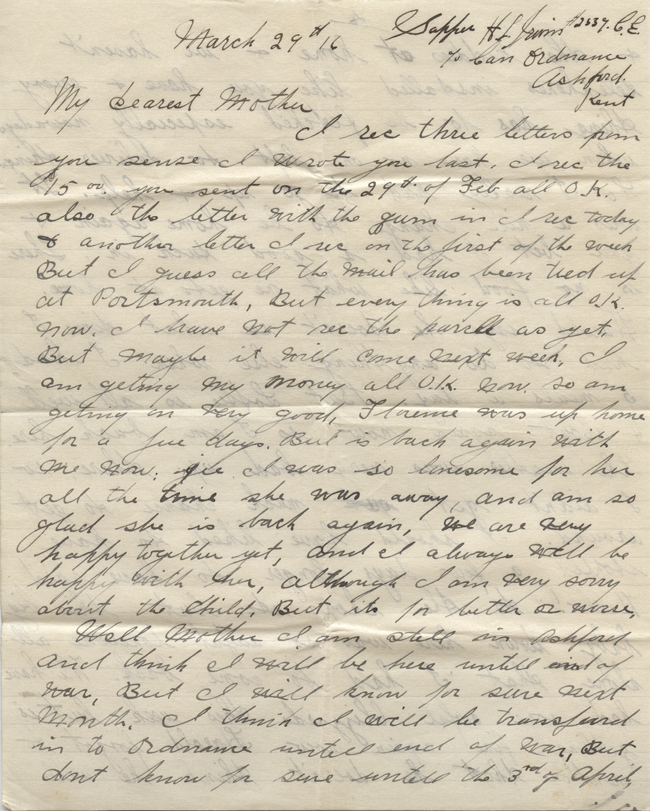 March 29th 16
Sapper H L Irwin #2537. C.E.
℅ Can Ordnance
Ashford.
Kent
My Dearest Mother
I rec three letters from
you sense I wrote you last. I rec the
$15 00. you sent on the 29th of Feb all O.K.
also the letter with the gum in I rec today
& another letter I rec on the first of the week
But I guess all the mail has been tied up
at Portsmouth, But every thing is all O.K.
now. I have not rec the parcell as yet.
But maybe it will come next week, I
am geting my money all O.K. now. so am
geting on very good, Florence was up home
for a few days. But is back again with
me now. gee I was so lonesome for her
all the time she was away, and am so
glad she is back again, we are very
happy together yet, and I always will be
happy with her, although I am very sorry
about the Child. But its for better or worse.
Well Mother I am still in Ashford
and think I will be here untill end of
war, But I will know for sure next
Month. I think I will be transferd
in to Ordnance untill end of war, But
dont know for sure untill the 3rd of April,